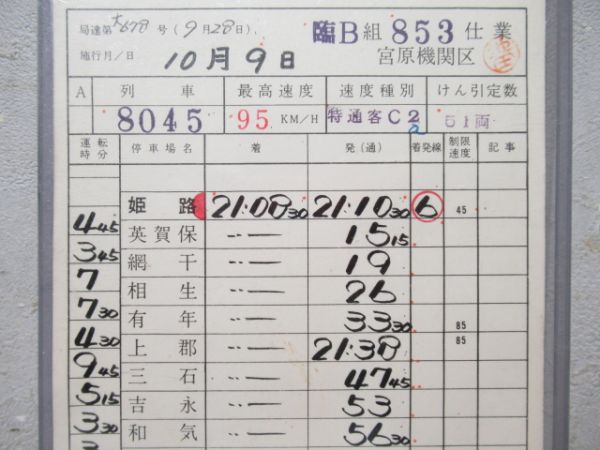 局達第大678号(9月28日) 臨B組853仕業
施行月/日 10月9日 宮原機関区
A 列車 最高速度 速度種別 けん引定数
8045 95 KM/H 特通客C2 51両
運転時分 停車場名 着 発(通) 着発線 制限速度 記事
姫路 21:08 30 21:10 30 6 45
4 45 英賀保 〃 — 15 15
3 45 網干 〃 — 19
7 相生 〃 — 26
7 30 有年 〃 — 33 30 85
4 30 上郡 〃 — 21:38 85
9 45 三石 〃 — 47 45
5 15 吉永 〃 — 53
3 30 和気 〃 — 56 30
3